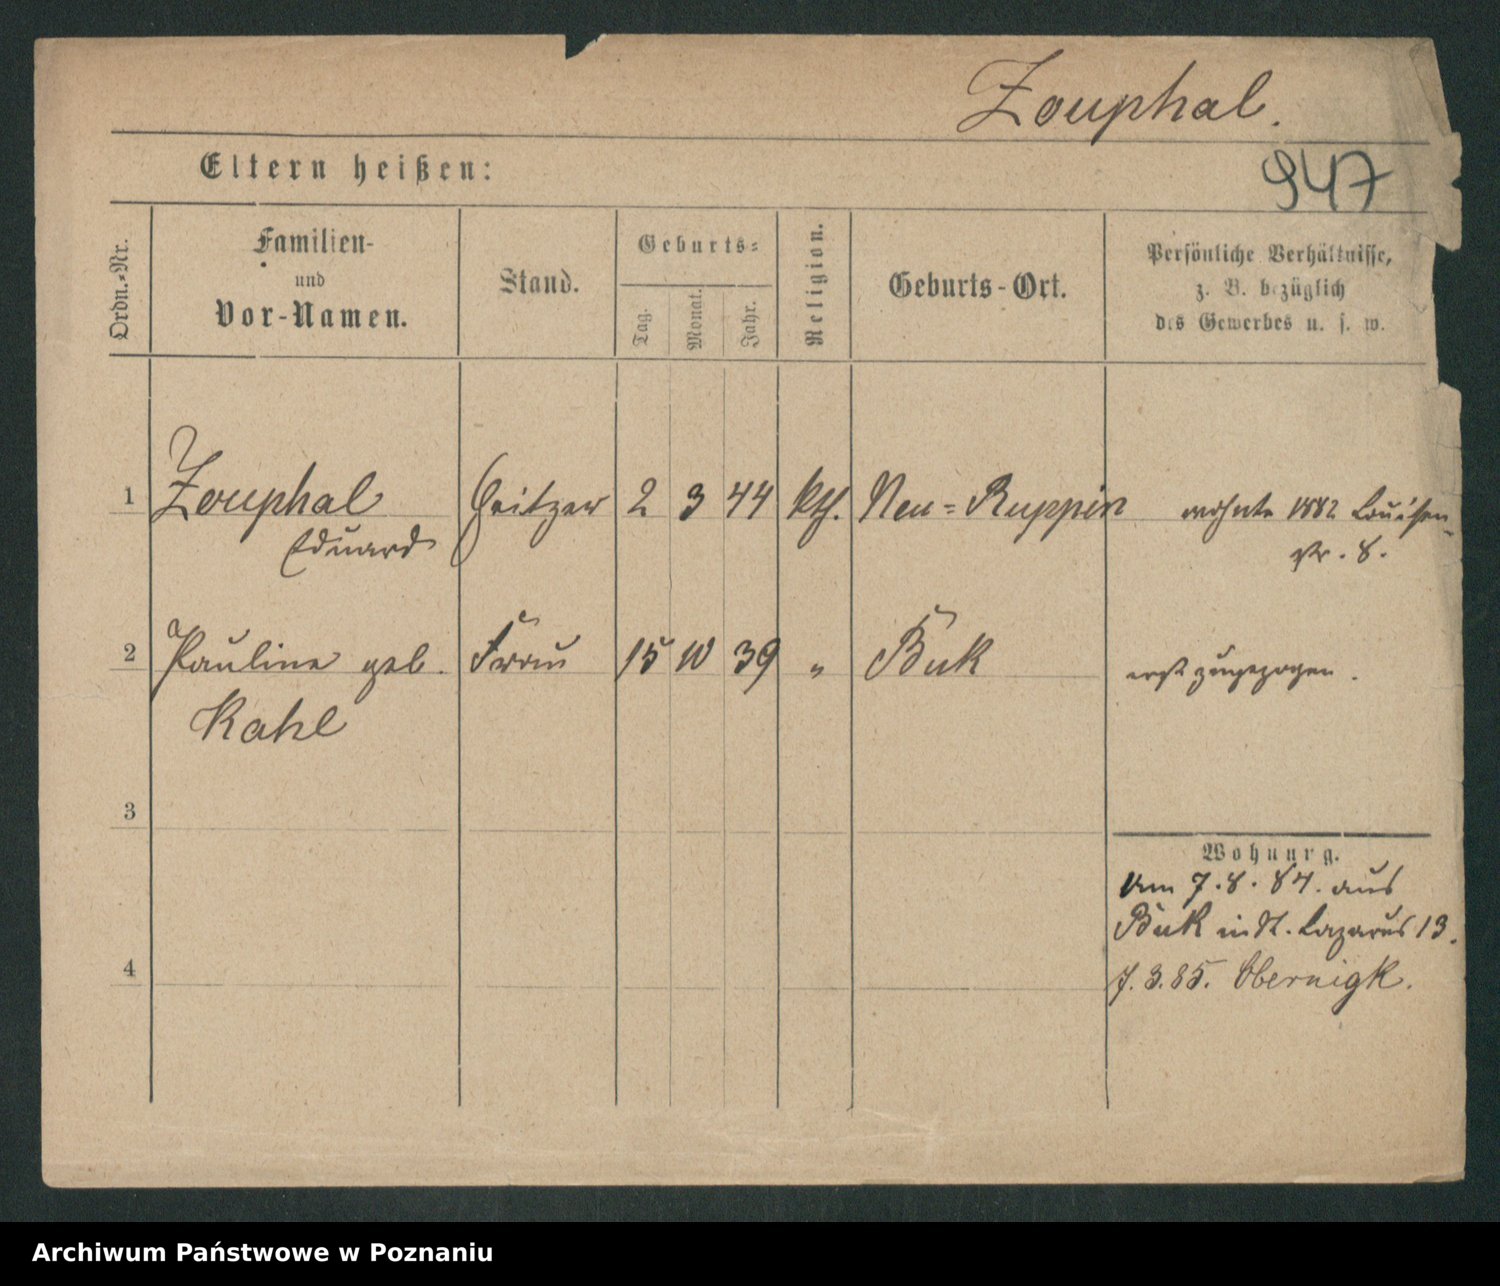 Zouphal.
Eltern heißen:
947
Ordn.-Nr.
Familien-
und
Vor-Namen.
Stand.
Geburts-
Tag.
Monat.
Jahr.
Religion.
Geburts-Ort.
Persönliche Verhältnisse,
z. B. bezüglich
des Gewerbes u. s. w.
1 Zouphal Heitzer 2 3 44 kth. Neu-Ruppin wohnte 1882 Louisen-
Eduard str. 8.
2 Pauline geb. Frau 15 10 39 " Buk erst zugezogen.
Kahl
3
Wohnung.
Am 7.8.84. aus
Buk in St. Lazarus 13.
4
7.3.85. Obernigk.
Archiwum Państwowe w Poznaniu